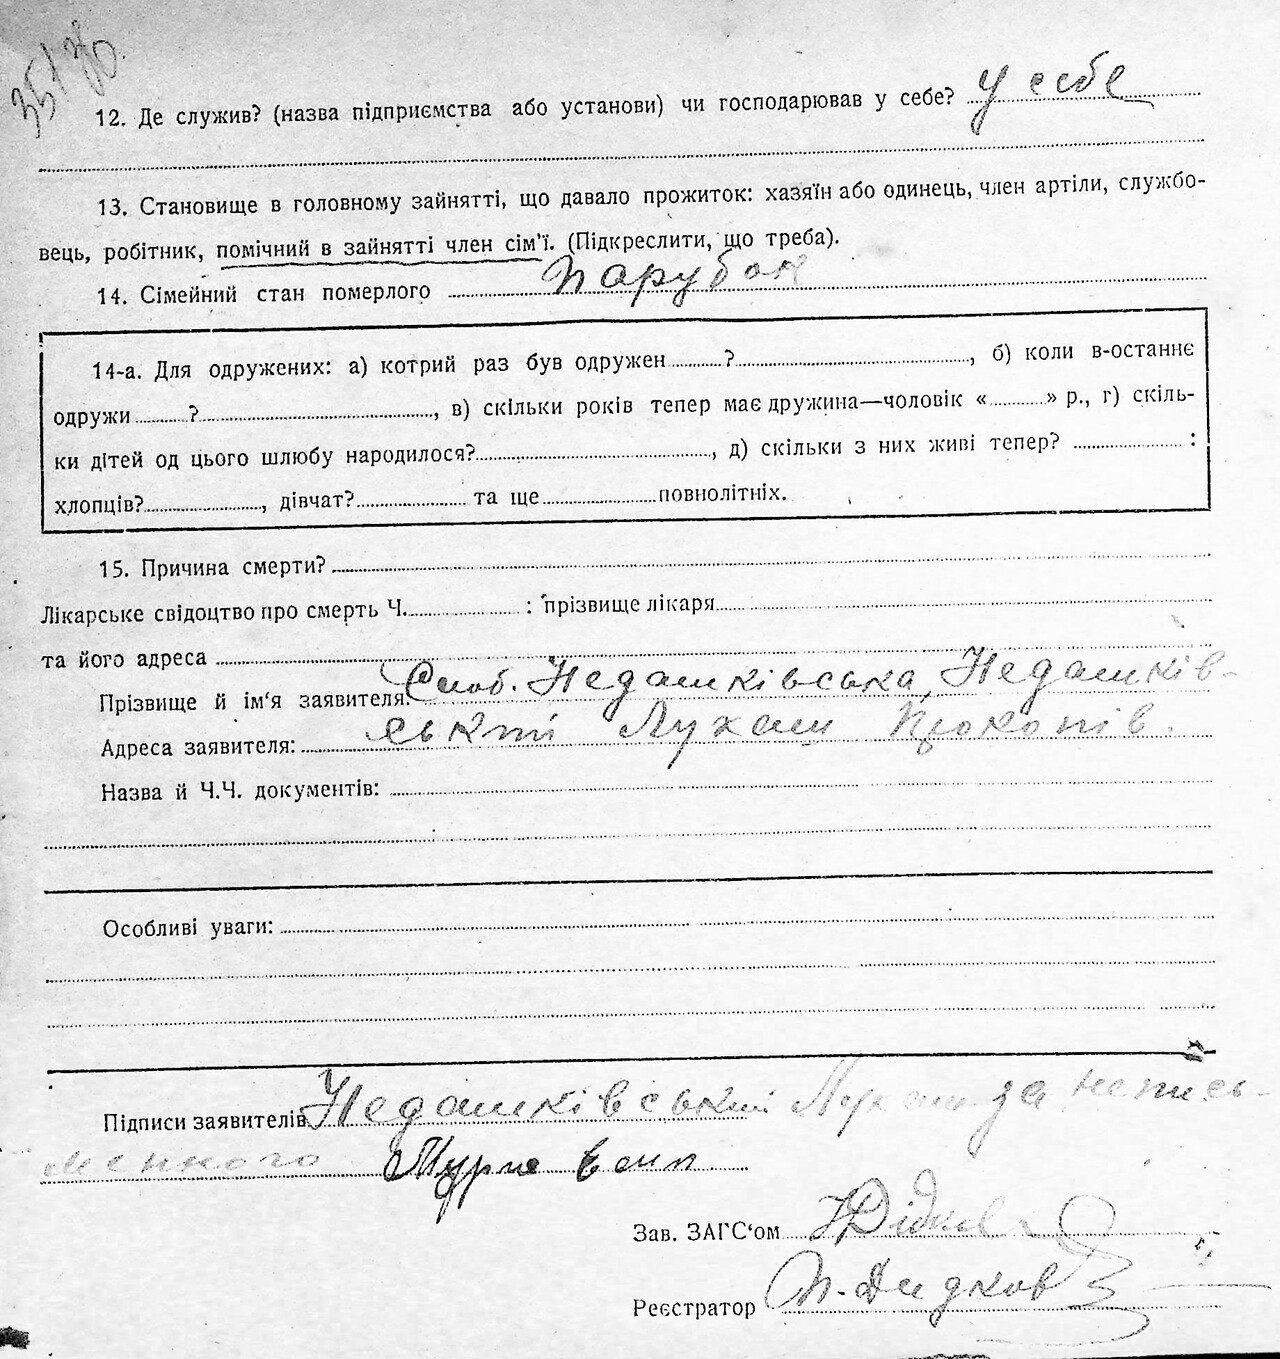 35/30.
12. Де служив? (назва підприємства або установи) чи господарював у себе? у себе
13. Становище в головному зайнятті, що давало прожиток: хазяїн або одинець, член артіли, службо-
вець, робітник, помічний в зайнятті член сім'ї. (Підкреслити, що треба).
14. Сімейний стан померлого парубок
14-а. Для одружених: а) котрий раз був одружен ? , б) коли в-останнє
одружи ? , в) скільки років тепер має дружина—чоловік « » р., г) скіль-
ки дітей од цього шлюбу народилося? , д) скільки з них живі тепер? :
хлопців? , дівчат? та ще повнолітніх.
15. Причина смерти?
Лікарське свідоцтво про смерть Ч. : прізвище лікаря
та його адреса
Прізвище й ім'я заявителя: Слоб. Недашківська, Недашків-
Адреса заявителя: ський Лукаш Прокопів.
Назва й Ч.Ч. документів:
Особливі уваги:
Підписи заявителів Недашківський Лукаш за непись-
менного
Зав. ЗАГС'ом
Реєстратор П. Дидков